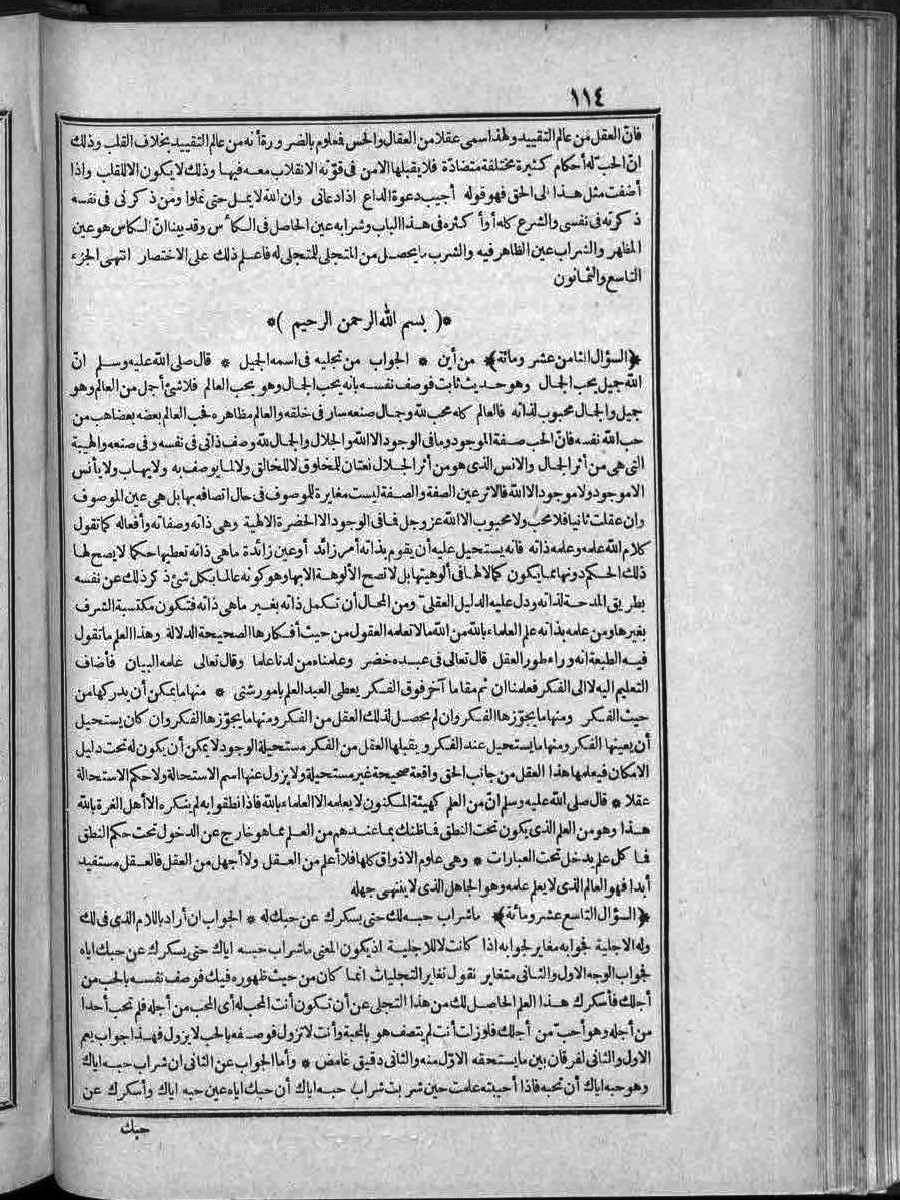 ١١٤
فانّ العقل من عالم التقييد ولهذا سمى عقلا من العقال والحس فعلوم بالضرورة أنه من عالم التقييد بخلاف القلب وذلك
انّ الحب له أحكام كثيرة مختلفة متضادّة فلا يقبلها الامن فى قوّته الانقلاب معه فيها وذلك لا يكون الاللقلب واذا
أضفت مثل هذا الى الحق فهو قوله أجيب دعوة الداع اذا دعانى وان الله لا يمل حتى تملوا ومن ذكرنى فى نفسه
ذكرته فى نفسى والشرع كله أوأكثره فى هذا الباب وشرابه عين الحاصل فى الكأس وقد بينا انّ الكاس هو عين
المظهر والشراب عين الظاهر فيه والشرب ما يحصل من المتجلى للمتجلى له فاعلم ذلك على الاختصار انتهى الجزء
التاسع والثمانون
*( بسم الله الرحمن الرحيم )*
﴿السؤال الثامن عشر ومائة﴾ من أين * الجواب من تجليه فى اسمه الجيل * قال صلى الله عليه وسلم انّ
الله جيل يحب الجال وهو حديث ثابت فوصف نفسه بأنه يحب الجال وهو يحب العالم فلا شئ أجل من العالم وهو
جيل والجال محبوب لذاته فالعالم كله محب لله وجمال صنعه سار فى خلقه والعالم مظاهره فحب العالم بعضه بعضا هب من
حب الله نفسه فانّ الحب صفة الموجود وما فى الوجود الا الله والجلال والجال لله وصف ذاتى فى نفسه وفى صنعه والهيبة
التى هى من أثر الجال والانس الذى هو من أثر الجلال نعتان للمخلوق لا للخالق ولا لما يوصف به ولا يهاب ولا يأنس
الا موجود ولا موجود الا الله فالاثر عين الصفة والصفة ليست مغايرة للموصوف فى حال اتصافه بها بل هى عين الموصوف
وان عقلت ثانيا فلا محب ولا محبوب الا الله عز وجل فما فى الوجود الا الحضرة الالهية وهى ذاته وصفاته وأفعاله كما تقول
كلام الله علمه وعلمه ذاته فانه يستحيل عليه أن يقوم بذاته أمر زائد أو عين زائدة ما هى ذاته تعطيها حكما لا يصح لها
ذلك الحكم دونها مما يكون كمالا لها فى ألوهيتها بل لا تصح الألوهة الا بها وهو كونه عالما بكل شئ ذكر ذلك عن نفسه
بطريق المدحة لذاته ودل عليه الدليل العقلىّ ومن المحال أن تكمل ذاته بغير ما هى ذاته فتكون مكتسبة الشرف
بغيرها ومن علمه بذاته علم العلماء بالله من الله ما لا تعلمه العقول من حيث أفكارها الصحيحة الدلالة وهذا العلم ما تقول
فيه الطبعة انه وراء طور العقل قال تعالى فى عبده خضر وعلمناه من لدنا علما وقال تعالى علمه البيان فأضاف
التعليم اليه لا الى الفكر فعلمنا ان ثم مقاما آخر فوق الفكر يعطى العبد العلم بأمور شتى * منها ما يمكن أن يدركها من
حيث الفكر ومنها ما يجوّزها الفكر وان لم يحصل لذلك العقل من الفكر ومنها ما يجوّزها الفكر وان كان يستحيل
أن يعينها الفكر ومنها ما يستحيل عند الفكر ويقبلها العقل من الفكر مستحيلة الوجود لا يمكن أن يكون له تحت دليل
الامكان فيعلمها هذا العقل من جانب الحق واقعة صحيحة غير مستحيلة ولا يزول عنها اسم الاستحالة ولا حكم الاستحالة
عقلا * قال صلى الله عليه وسلم انّ من العلم كهيئة المكنون لا يعلمه الا العلماء بالله فاذا نطقوا به لم ينكره الا أهل الغرة بالله
هذا وهو من العلم الذى يكون تحت النطق فما ظنك بما عندهم من العلم مما هو خارج عن الدخول تحت حكم النطق
فما كل علم يدخل تحت العبارات * وهى علوم الاذواق كلها فلا أعلم من العقل ولا أجهل من العقل فالعقل مستفيد
أبدا فهو العالم الذى لا يعلم علمه وهو الجاهل الذى لا ينتهى جهله
﴿السؤال التاسع عشر ومائة﴾ ما شراب حبه لك حتى يسكرك عن حبك له * الجواب ان أراد باللام الذى فى لك
وله الاجلية فجوابه مغاير لجوابه اذا كانت لا للاجلية اذ يكون المعنى ما شراب حبه اياك حتى يسكرك عن حبك اياه
فجواب الوجه الاول والثانى متغاير نقول تغاير التجليات انما كان من حيث ظهوره فيك فوصف نفسه بالحب من
أجلك فأسكرك هذا العلم الحاصل لك من هذا التجلى عن أن تكون أنت المحب له أى المحب من أجله فلم تحب أحدا
من أجله وهو أحبّ من أجلك فلو زلت أنت لم يتصف هو بالمحبة وأنت لا تزول فوصفه بالحب لا يزول فهذا جواب يعم
الاول والثانى لفرقان بين ما يستحقه الاوّل منه والثانى دقيق غامض * وأما الجواب عن الثانى ان شراب حبه اياك
وهو حبه اياك أن تحبه فاذا أحببته علمت حين شربت شراب حبه اياك أن حبك اياه عين حبه اياك وأسكرك عن
حبك